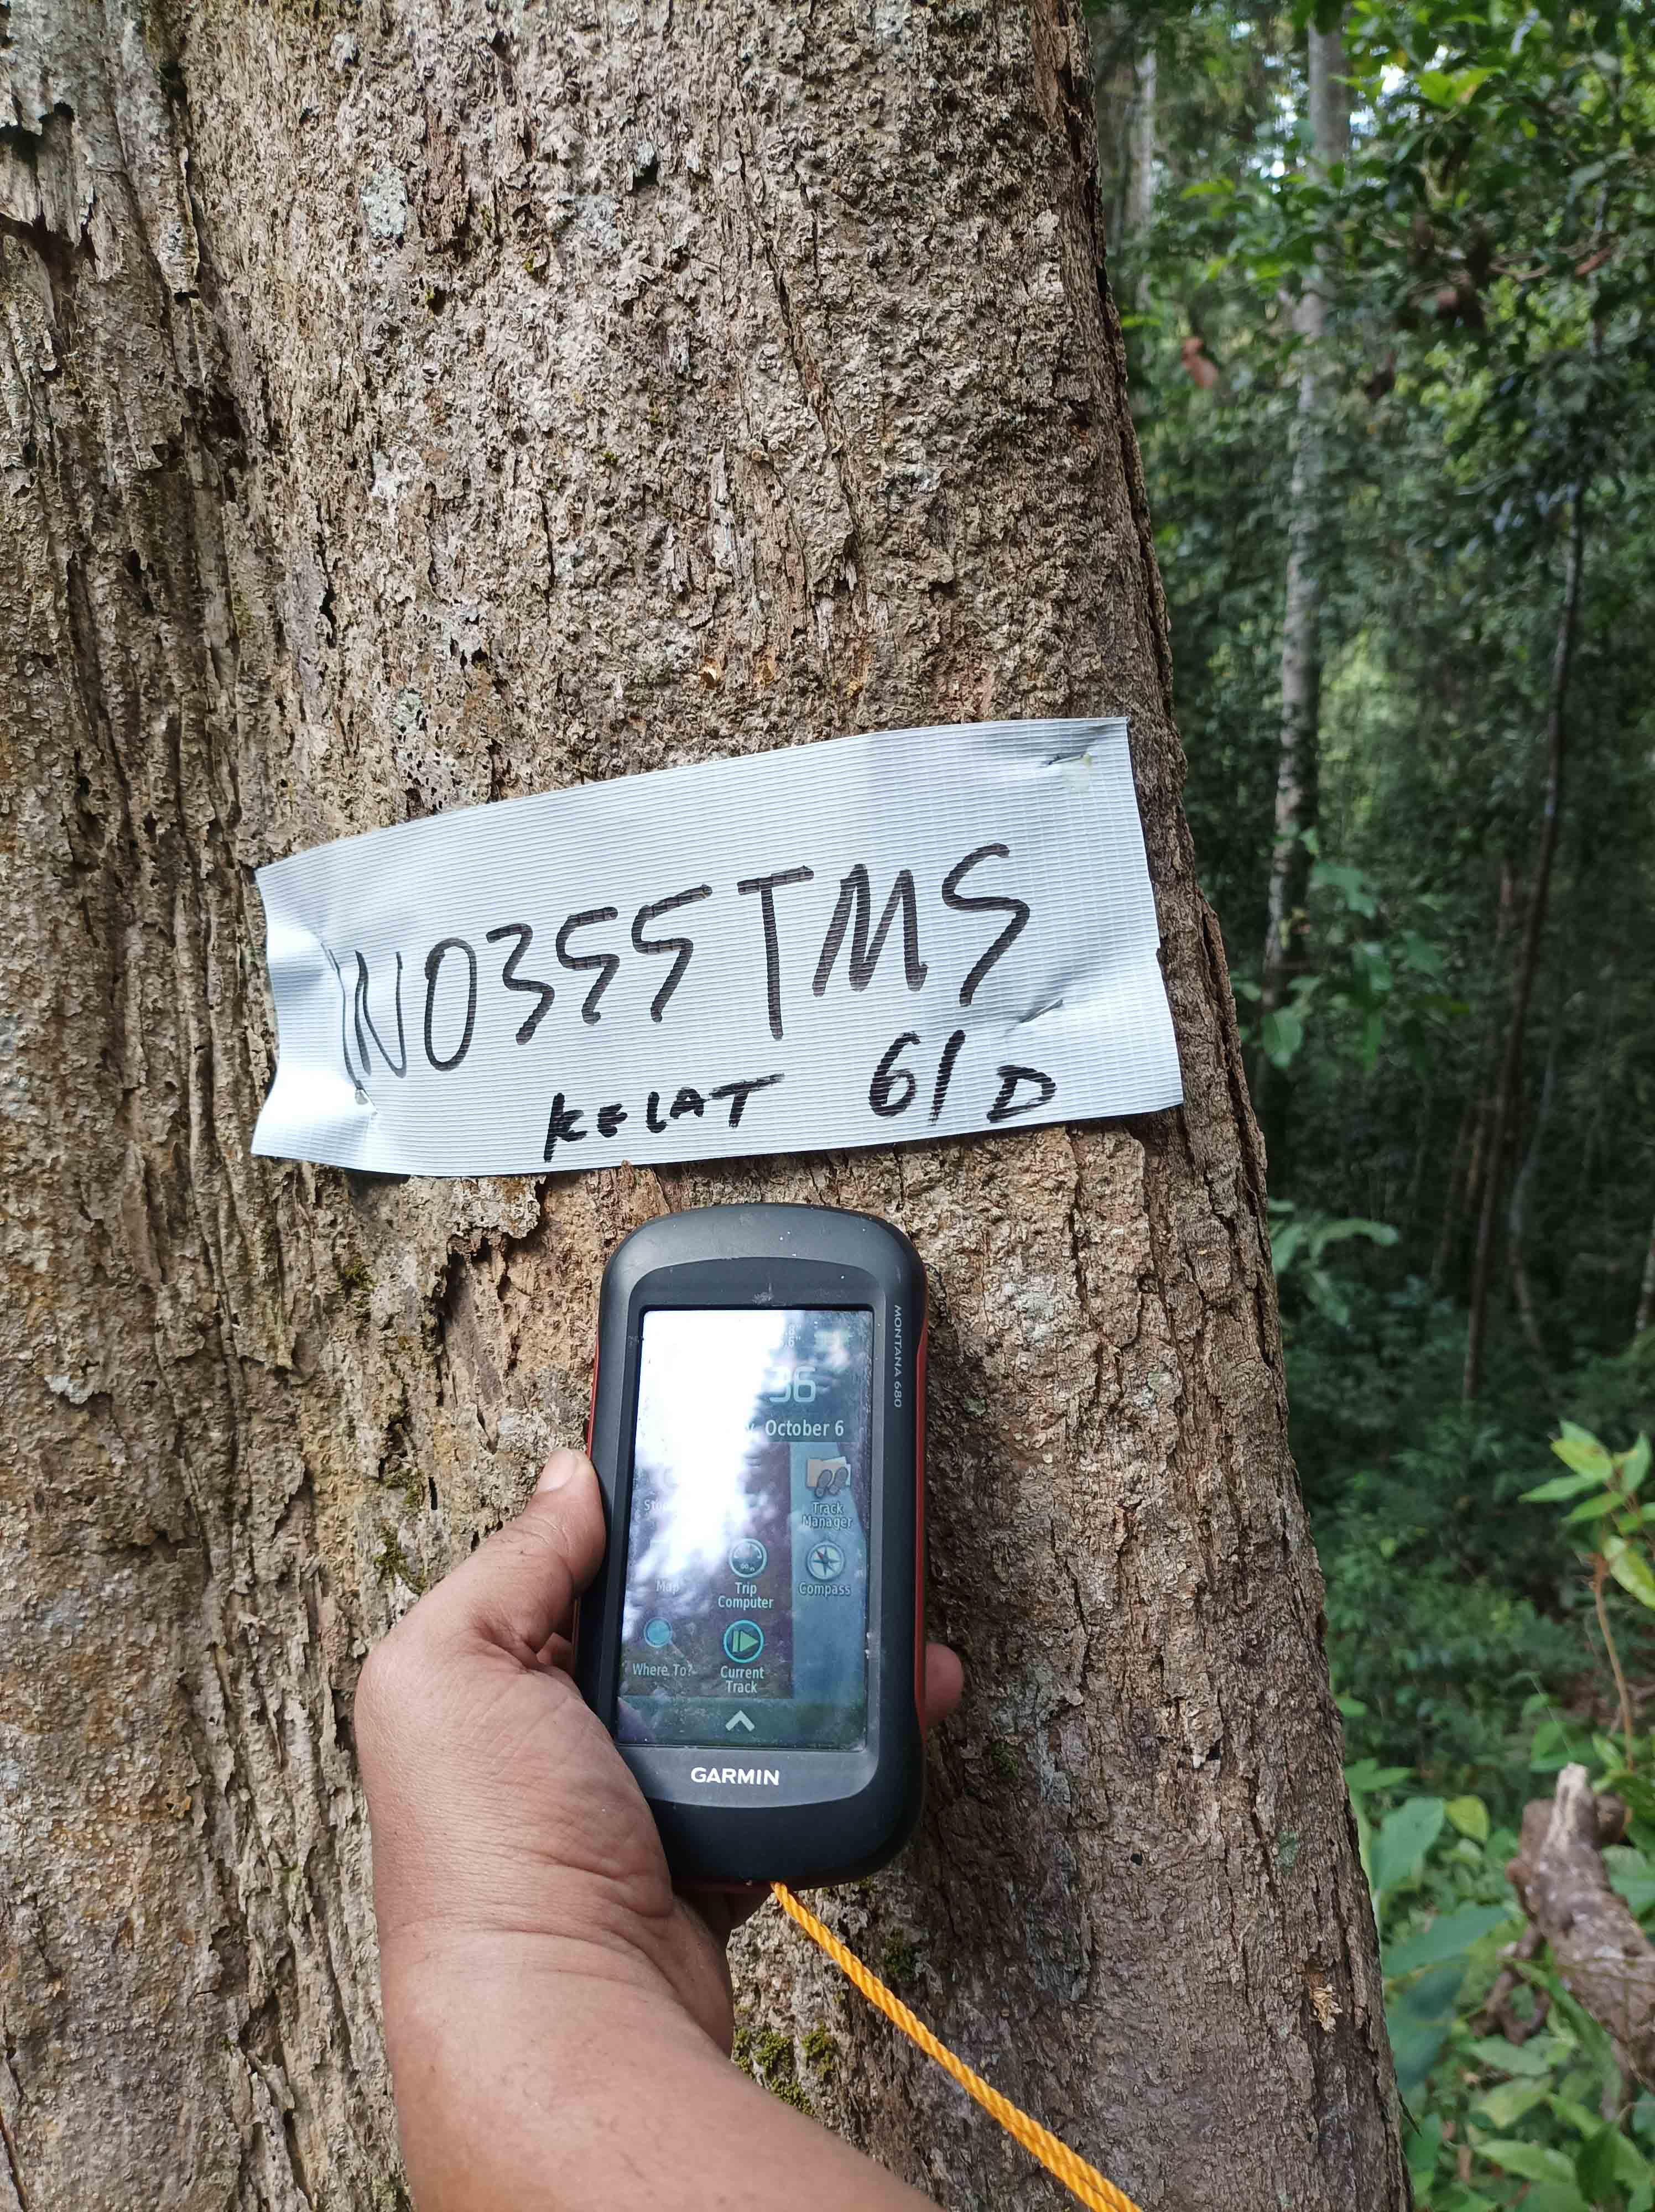 NO355TMS
KELAT 61 D
MONTANA 680
36
October 6
Track Manager
Map
Trip Computer
Compass
Where To?
Current Track
GARMIN